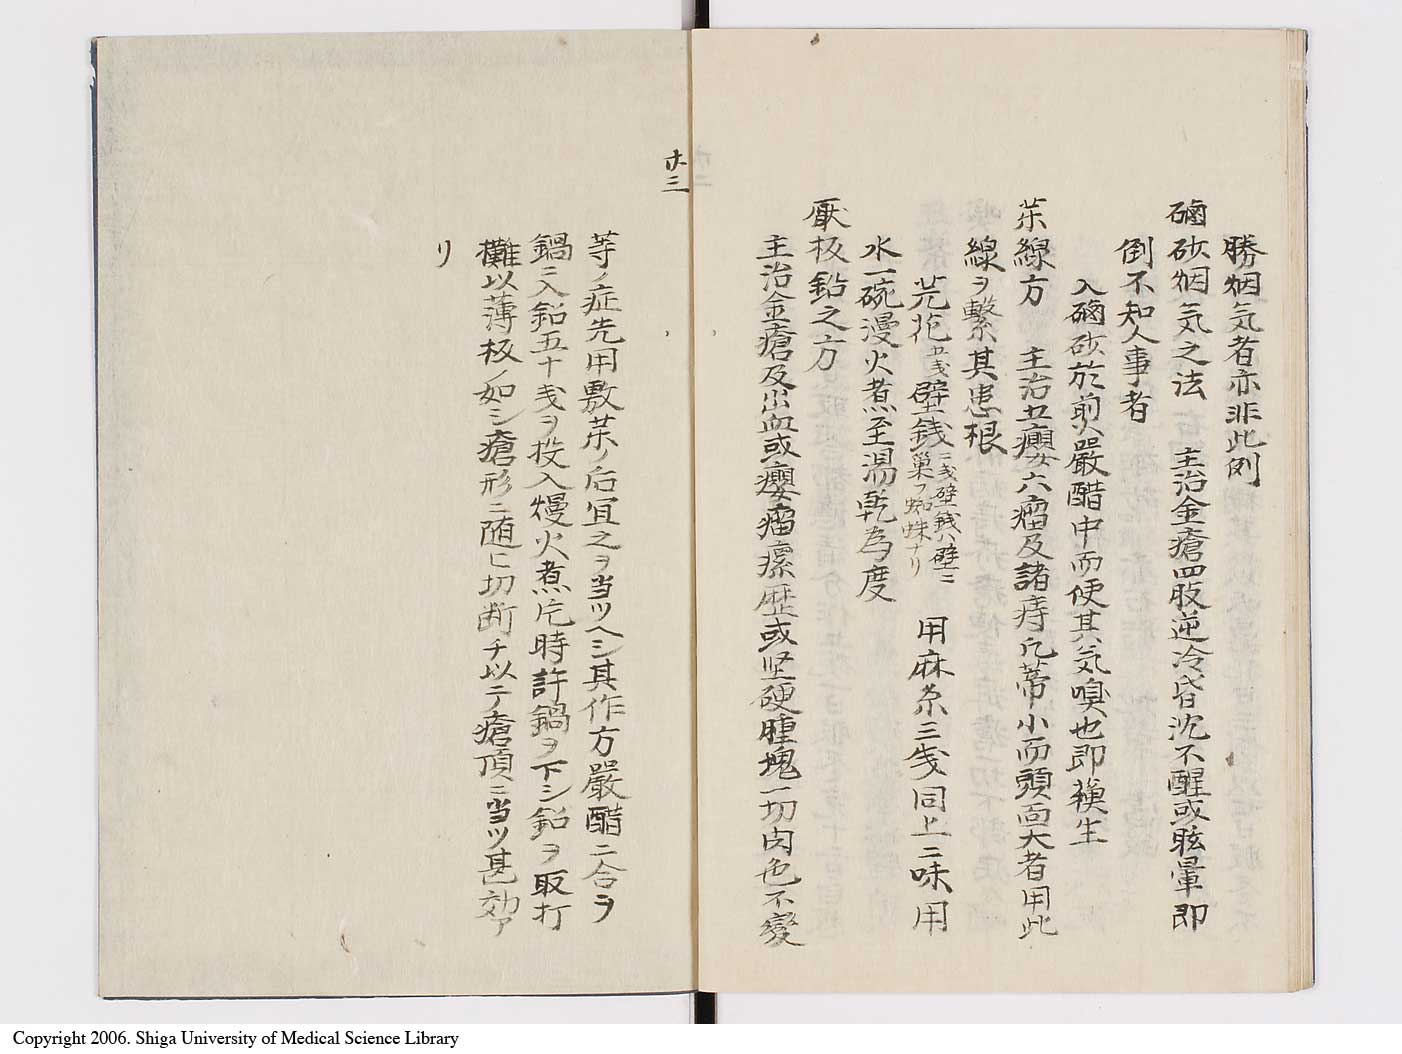 勝烟気者亦非此例
硇砂烟気之法　主治金瘡四肢逆冷昏沈不醒或眩暈即
倒不知人事者
入硇砂於煎嚴醋中而使其気嗅也即蘓生
茶線方　主治五癭六瘤及諸痔凡蒂小而頭面大者用此
線ヲ繫其患根
芫花五戔壁銭二戔壁銭ハ壁ニ
巣フ蜘蛛ナリ　用麻糸三戔同上二味用
水一碗漫火煮至湯乾為度
厭板鉛之方
主治金瘡及出血或癭瘤瘰歴或坚硬腫塊一切肉色不變
廿三
等ノ症先用敷茶ノ后宜之ヲ当ツヘシ其作方嚴醋二合ヲ
鍋ニ入鉛五十戔ヲ投入熳火煮片時許鍋ヲ下シ鉛ヲ取打
攤以薄板ノ如シ瘡形ニ随ヒ切断チ以テ瘡頂ニ当ツ甚効ア
リ
Copyright 2006. Shiga University of Medical Science Library